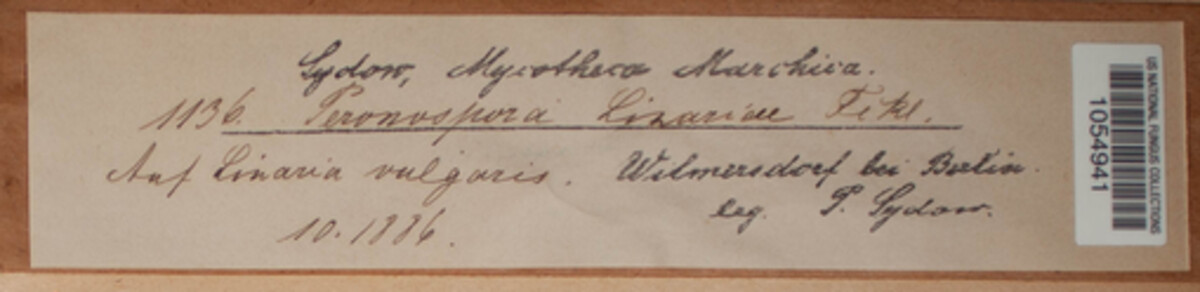 Sydow, Mycotheca Marchica.
1136. Peronospora Linariae Fckl.
Auf Linaria vulgaris. Wilmersdorf bei Berlin.
10.1886. leg. P. Sydow.
US NATIONAL FUNGUS COLLECTIONS
1054941